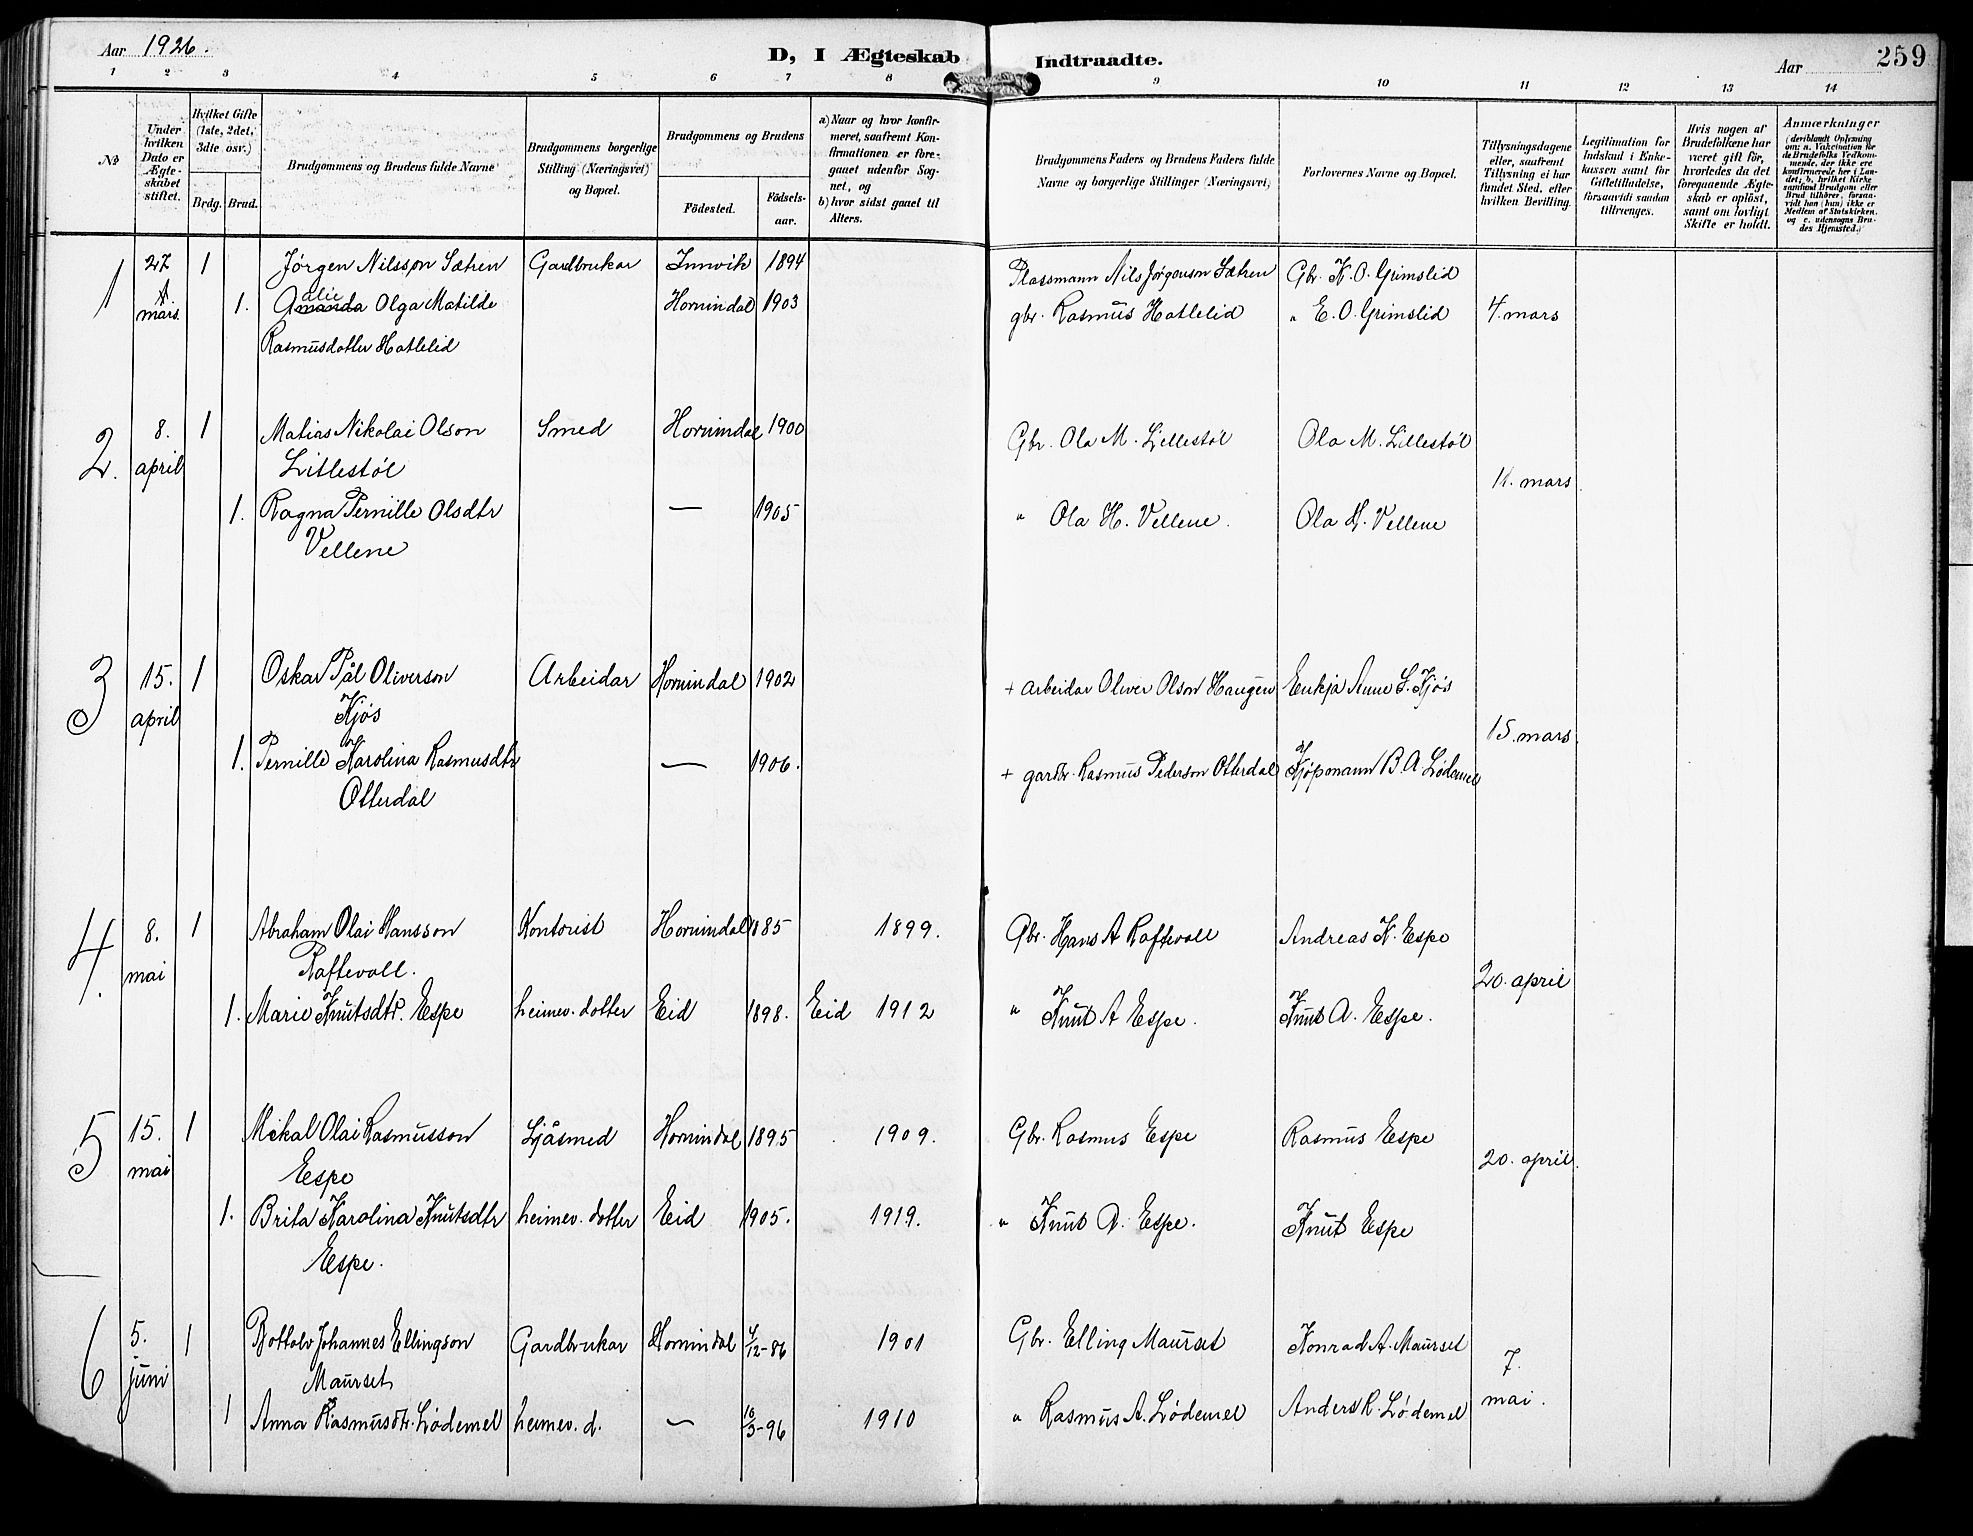 Aar 1926.
D, I Ægteskab Indtraadte.
Aar
259
1 2 3 4 5 6 7 8 9 10 11 12 13 14
No
Under hvilken Dato er Ægteskabet stiftet.
Hvilket Gifte (1ste, 2det, 3die osv.)
Brdg. Brud.
Brudgommens og Brudens fulde Navne
Brudgommens borgerlige Stilling (Næringsvei) og Bopæl.
Brudgommens og Brudens
Fødested.
Fødselsaar.
a) Naar og hvor konfirmeret, saafremt Konfirmationen er foregaaet udenfor Sognet, og
b) hvor sidst gaaet til Alters.
Brudgommens Faders og Brudens Faders fulde Navne og borgerlige Stillinger (Næringsvei)
Forlovernes Navne og Bopæl.
Tillysningsdagene eller, saafremt Tillysning ei har fundet Sted, efter hvilken Bevilling.
Legitimation for Indskud i Enkekassen samt for Giftetilladelse, forsaavidt saadan tiltrænges.
Hvis nogen af Brudefolkene har været gift før, hvorledes da det foregaaende Ægteskab er opløst, samt om lovligt Skifte er holdt.
Anmærkninger
(deriblandt Oplysning om: a. Vakcination for de Brudefolks Vedkommende, der ikke ere konfirmerede her i Landet; b. hvilket Kirkesamfund Brudgom eller Brud tilhører, forsaavidt han (hun) ikke er Medlem af Statskirken, og c. udensogns Brudes Hjemsted.)
1 27 mars 1 Jørgen Nilsson Sætren Gardbrukar Innvik 1894 Plassmann Nils Jørgenson Sætren Gbr. K. O. Grimslid
alie
1. Amanda Olga Matilde Hornindal 1903 gbr. Rasmus Hatlelid " E. O. Grimslid 4. mars
Rasmusdotter Hatlelid
2. 8. april 1 Matias Nikolai Olson Smed Hornindal 1900 Gbr. Ola M. Lillestøl Ola M. Lillestøl
Litlestøl
11. mars
1. Ragna Pernille Olsdtr — 1905 " Ola H. Vellene. Ola H. Vellene
Vellene
3 15. april 1 Oskar Pål Oliverson Arbeidar Hornindal 1902 + arbeidar Oliver Olson Haugen Enkja Anne S. Kjøs
Kjøs
15. mars.
1. Pernille Karolina Rasmusdtr — 1906. + gardbr. Rasmus Pederson Otterdal Kjøpmann B. A Lødemel
Otterdal
4. 8. mai 1 Abraham Olai Hansson Kontorist Hornindal 1885 1899. Gbr. Hans A Raftevoll Andreas K. Espe
Raftevoll.
20. april
1. Marie Knutsdtr. Espe heimev. dotter Eid 1898. Eid 1912 " Knut A Espe. Knut A. Espe.
5 15. mai 1 Mikal Olai Rasmusson Ljåsmed Hornindal 1895 1909. Gbr. Rasmus Espe Rasmus Espe
Espe
20. april.
1. Brita Karolina Knutsdtr heimev. dotter Eid 1905. 1919. " Knut A. Espe. Knut Espe
Espe.
6 5. juni 1 Bottolv Johannes Ellingson Gardbrukar Hornindal 4/12-86 1901 Gbr. Elling Maurset Konrad A. Maurset
Maurset
7. mai.
1 Anna Rasmusdtr. Lødemel heimev. d. — 16/3-96 1910 " Rasmus A. Lødemel Anders R. Lødemel